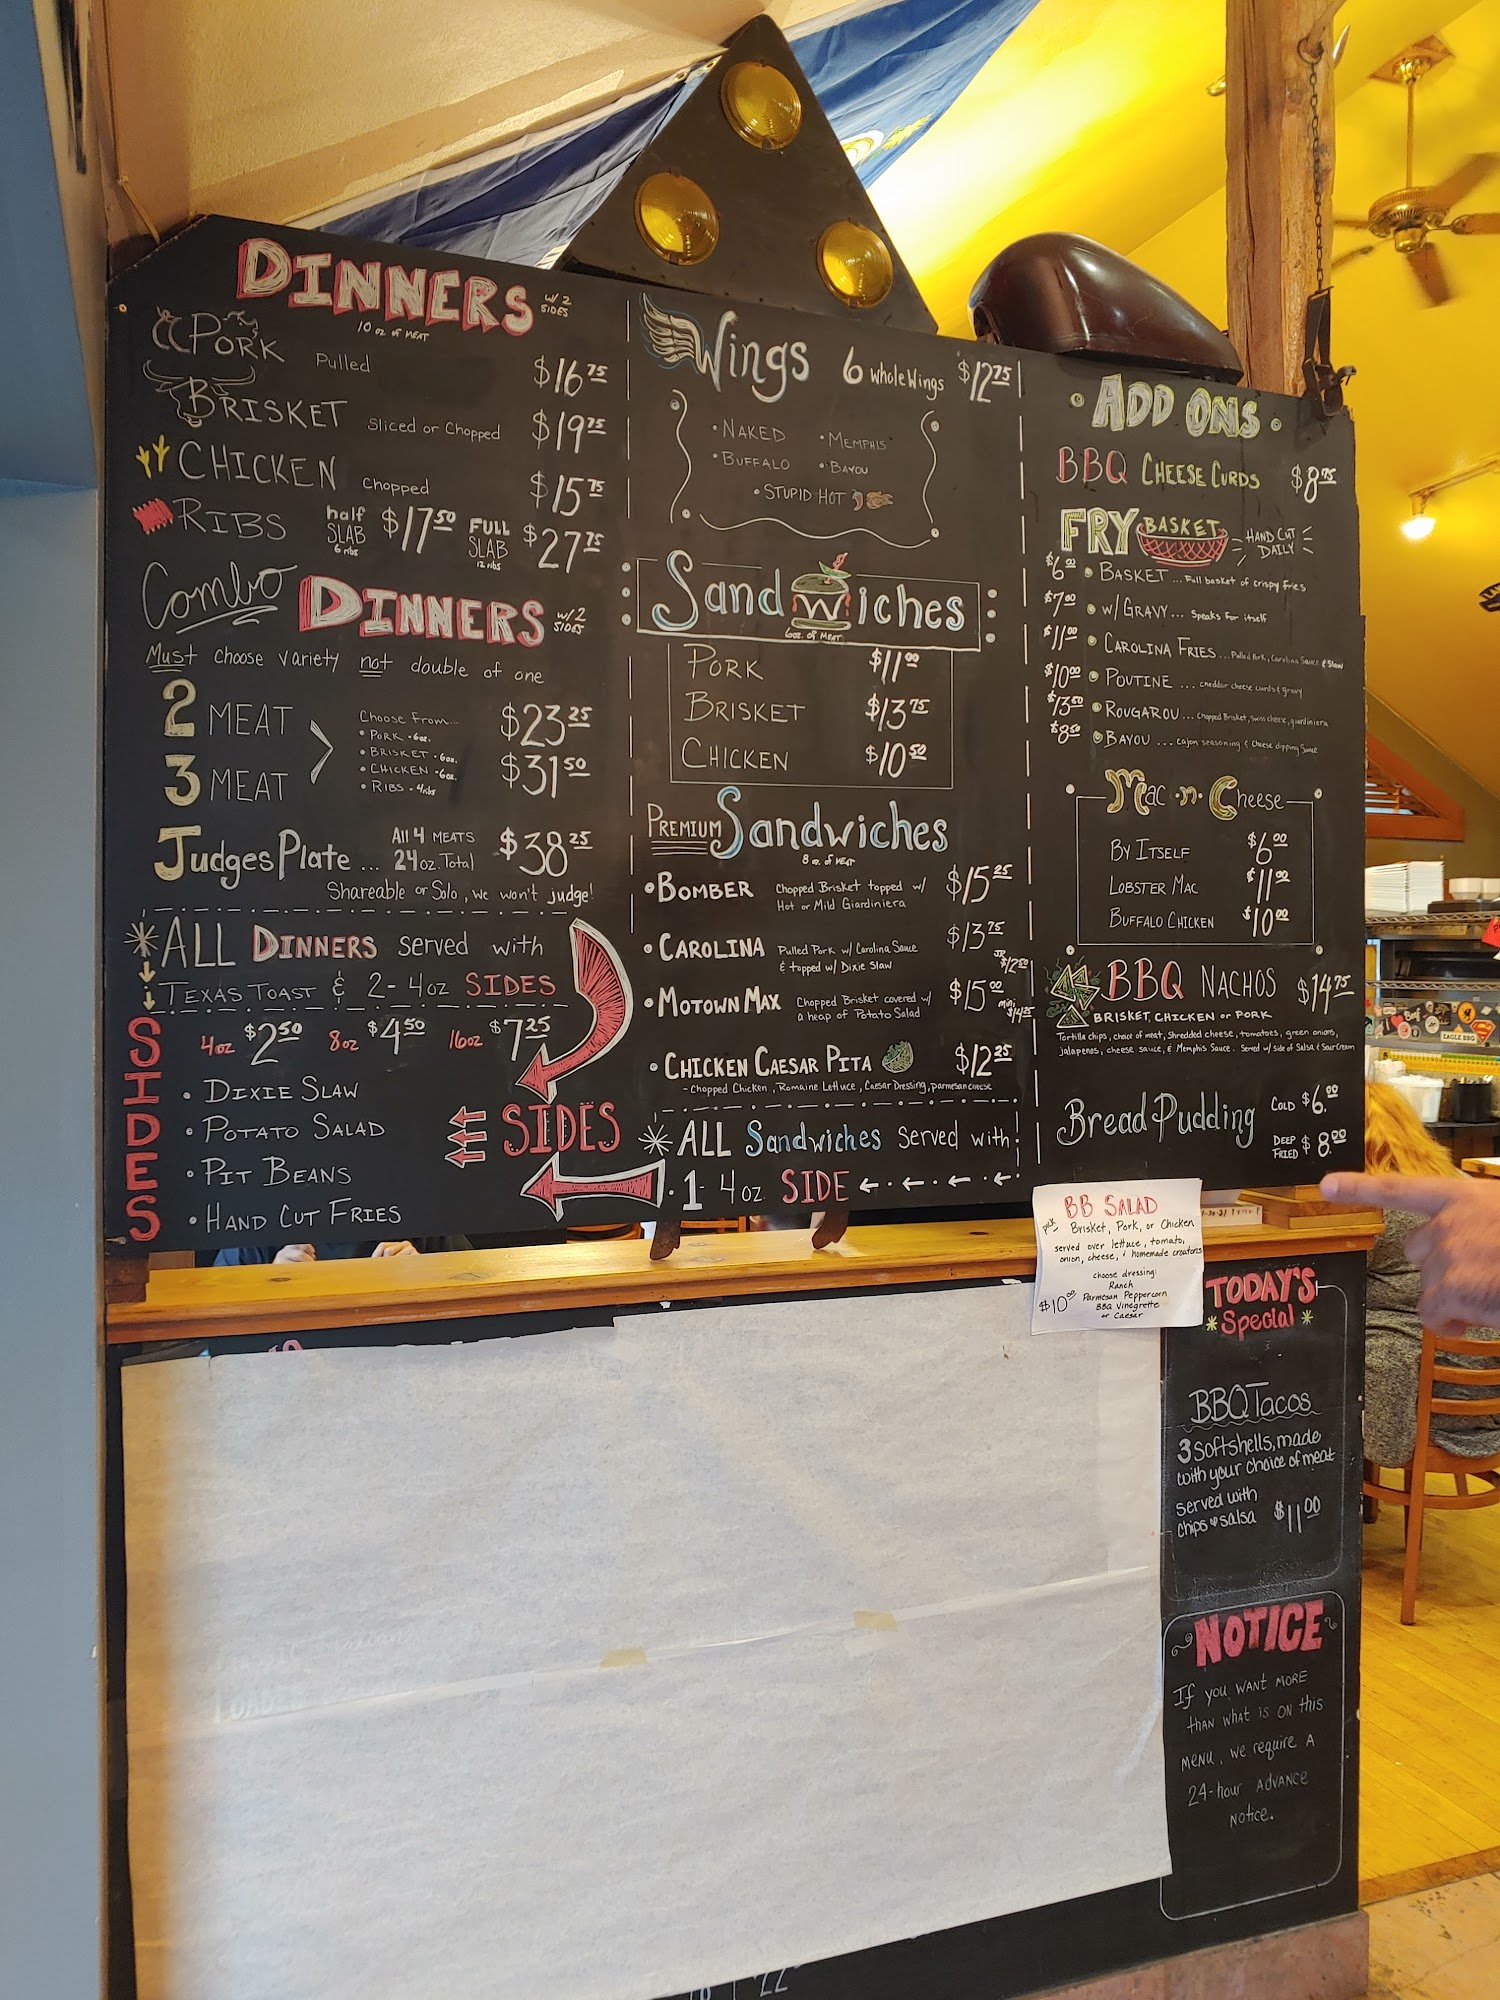 DINNERS w/2 SIDES
10 oz of MEAT
PORK Pulled $16.75
BRISKET Sliced or Chopped $19.75
CHICKEN Chopped $15.75
RIBS half SLAB 6 ribs $17.50 FULL SLAB 12 ribs $27.75
Combo DINNERS w/2 SIDES
Must choose variety not double of one
2 MEAT $23.25
3 MEAT $31.50
Choose From...
• PORK - 6oz.
• BRISKET - 6oz.
• CHICKEN - 6oz.
• RIBS - 4ribs
Judges Plate ... All 4 MEATS 24oz. Total $38.25
Shareable or Solo, we won't judge!
*ALL DINNERS served with
TEXAS TOAST & 2- 4oz SIDES
SIDES
4oz $2.50 8oz $4.50 16oz $7.25
• DIXIE SLAW
• POTATO SALAD
• PIT BEANS
• HAND CUT FRIES
SIDES
Wings 6 Whole Wings $12.75
• NAKED • MEMPHIS
• BUFFALO • BAYOU
• STUPID HOT
Sandwiches
6oz. of MEAT
PORK $11.00
BRISKET $13.75
CHICKEN $10.50
PREMIUM Sandwiches
8 oz. of MEAT
• BOMBER Chopped Brisket topped w/ $15.25
Hot or Mild Giardiniera
• CAROLINA Pulled Pork w/ Carolina Sauce $13.75
& topped w/ Dixie Slaw JR $12.50
• MOTOWN MAX Chopped Brisket covered w/ $15.00
a heap of Potato Salad mini
• CHICKEN CAESAR PITA $12.25
- Chopped Chicken, Romaine Lettuce, Caesar Dressing, parmesan cheese
*ALL Sandwiches Served with:
• 1- 4oz. SIDE
• ADD ONS •
BBQ CHEESE CURDS $8.75
FRY BASKET HAND CUT DAILY
$6.00 • BASKET ... Full basket of crispy fries
$7.00 • W/ GRAVY ... Speaks for itself
$11.00 • CAROLINA FRIES ... Pulled Pork, Carolina Sauce & Slaw
$10.00 • POUTINE ... cheddar cheese curds & gravy
$13.50 • ROUGAROU ... Chopped Brisket, swiss cheese, giardiniera
$8.50 • BAYOU ... cajon seasoning & Cheese dipping Sauce
Mac·n·Cheese
BY ITSELF $6.00
LOBSTER MAC $11.00
BUFFALO CHICKEN $10.00
BBQ NACHOS $14.75
BRISKET, CHICKEN or PORK
Tortilla chips, choice of meat, Shredded cheese, tomatoes, green onions,
jalapenos, cheese sauce, & Memphis Sauce. Served w/ side of Salsa & Sour Cream
Bread Pudding COLD $6.00
DEEP FRIED $8.00
BB SALAD
pick Brisket, Pork, or Chicken
served over lettuce, tomato,
onion, cheese, & homemade croutons
choose dressing:
Ranch
Parmesan Peppercorn
BBQ Vinegrette
or Caesar
$10.00
TODAY'S
*Special*
BBQ Tacos
3 Softshells, made
with your choice of meat
served with
chips & salsa $11.00
NOTICE
If you WANT MORE
than what is on this
MENU, we require A
24-hour ADVANCE
Notice.
EAGLE BBQ